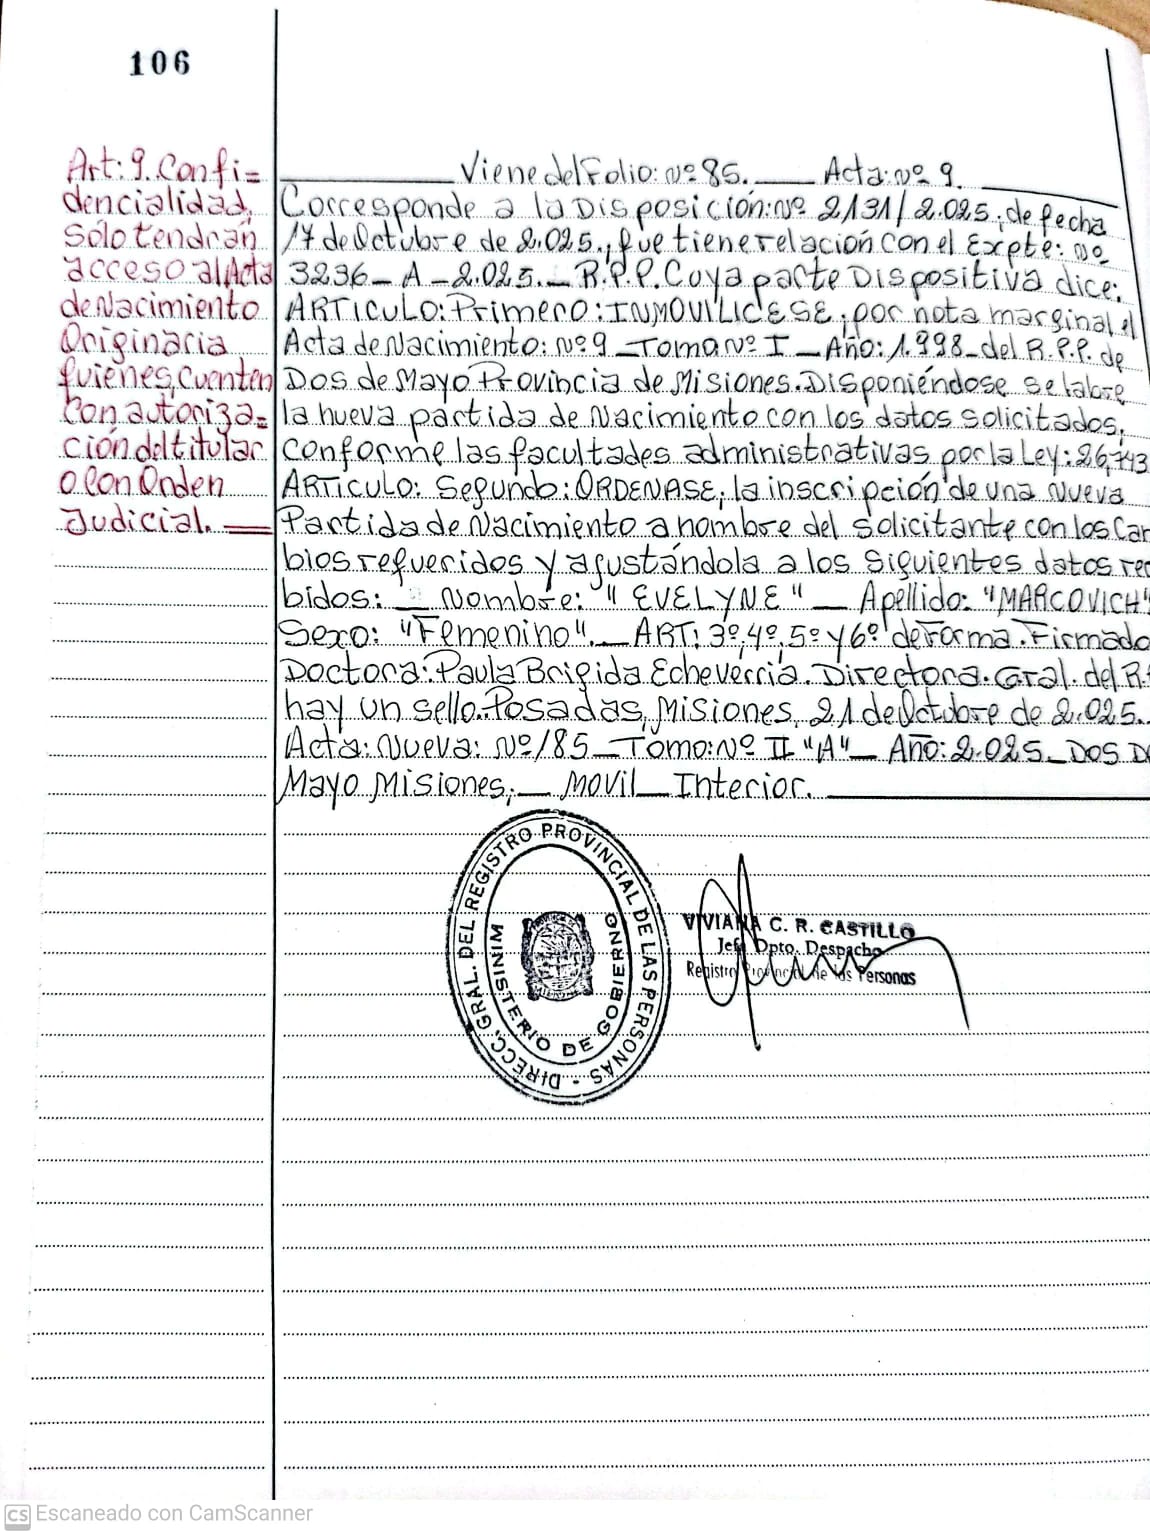 106
Art: 9. Confi=
dencialidad,
Sólo tendrán
acceso al Acta
de Nacimiento
Originaria
quienes, cuenten
Con autoriza=
ción del titular
o Con Orden
Judicial.
Viene del Folio: Nº 85. Acta: Nº 9.
Corresponde a la Disposición: Nº 2131/2.025, de fecha
17 de Octubre de 2.025., que tiene relación con el Expte: Nº
3236 - A - 2.025. _ R.P.P. Cuya parte Dispositiva dice:
ARTICULO: Primero: INMOVILICESE, por nota marginal el
Acta de Nacimiento: Nº 9 _ Tomo Nº I _ Año: 1.998 _ del R.P.P. de
Dos de Mayo Provincia de Misiones. Disponiéndose se labre
la nueva partida de Nacimiento con los datos solicitados,
Conforme las facultades administrativas por la Ley: 26,743
ARTICULO: Segundo: ORDENASE, la inscripción de una Nueva
Partida de Nacimiento a nombre del Solicitante con los Cam
bios requeridos y ajustándola a los Siguientes datos rec
bidos: _ Nombre: "EVELYNE" _ Apellido: "MARCOVICH"
Sexo: "Femenino". _ ART: 3º, 4º, 5º y 6º de Forma. Firmado
Doctora: Paula Brigida Echeverría. Directora. Gral. del R.
hay un sello. Posadas, Misiones, 21 de Octubre de 2.025.
Acta: Nueva: Nº 185 _ Tomo: Nº II "A" _ Año: 2.025 _ DOS D
Mayo Misiones, _ MOVIL _ Interior.
DIRECC. GRAL. DEL REGISTRO PROVINCIAL DE LAS PERSONAS
MINISTERIO DE GOBIERNO
VIVIANA C. R. CASTILLO
Jefa Dpto. Despacho
Registro Provincial de las Personas
CS Escaneado con CamScanner